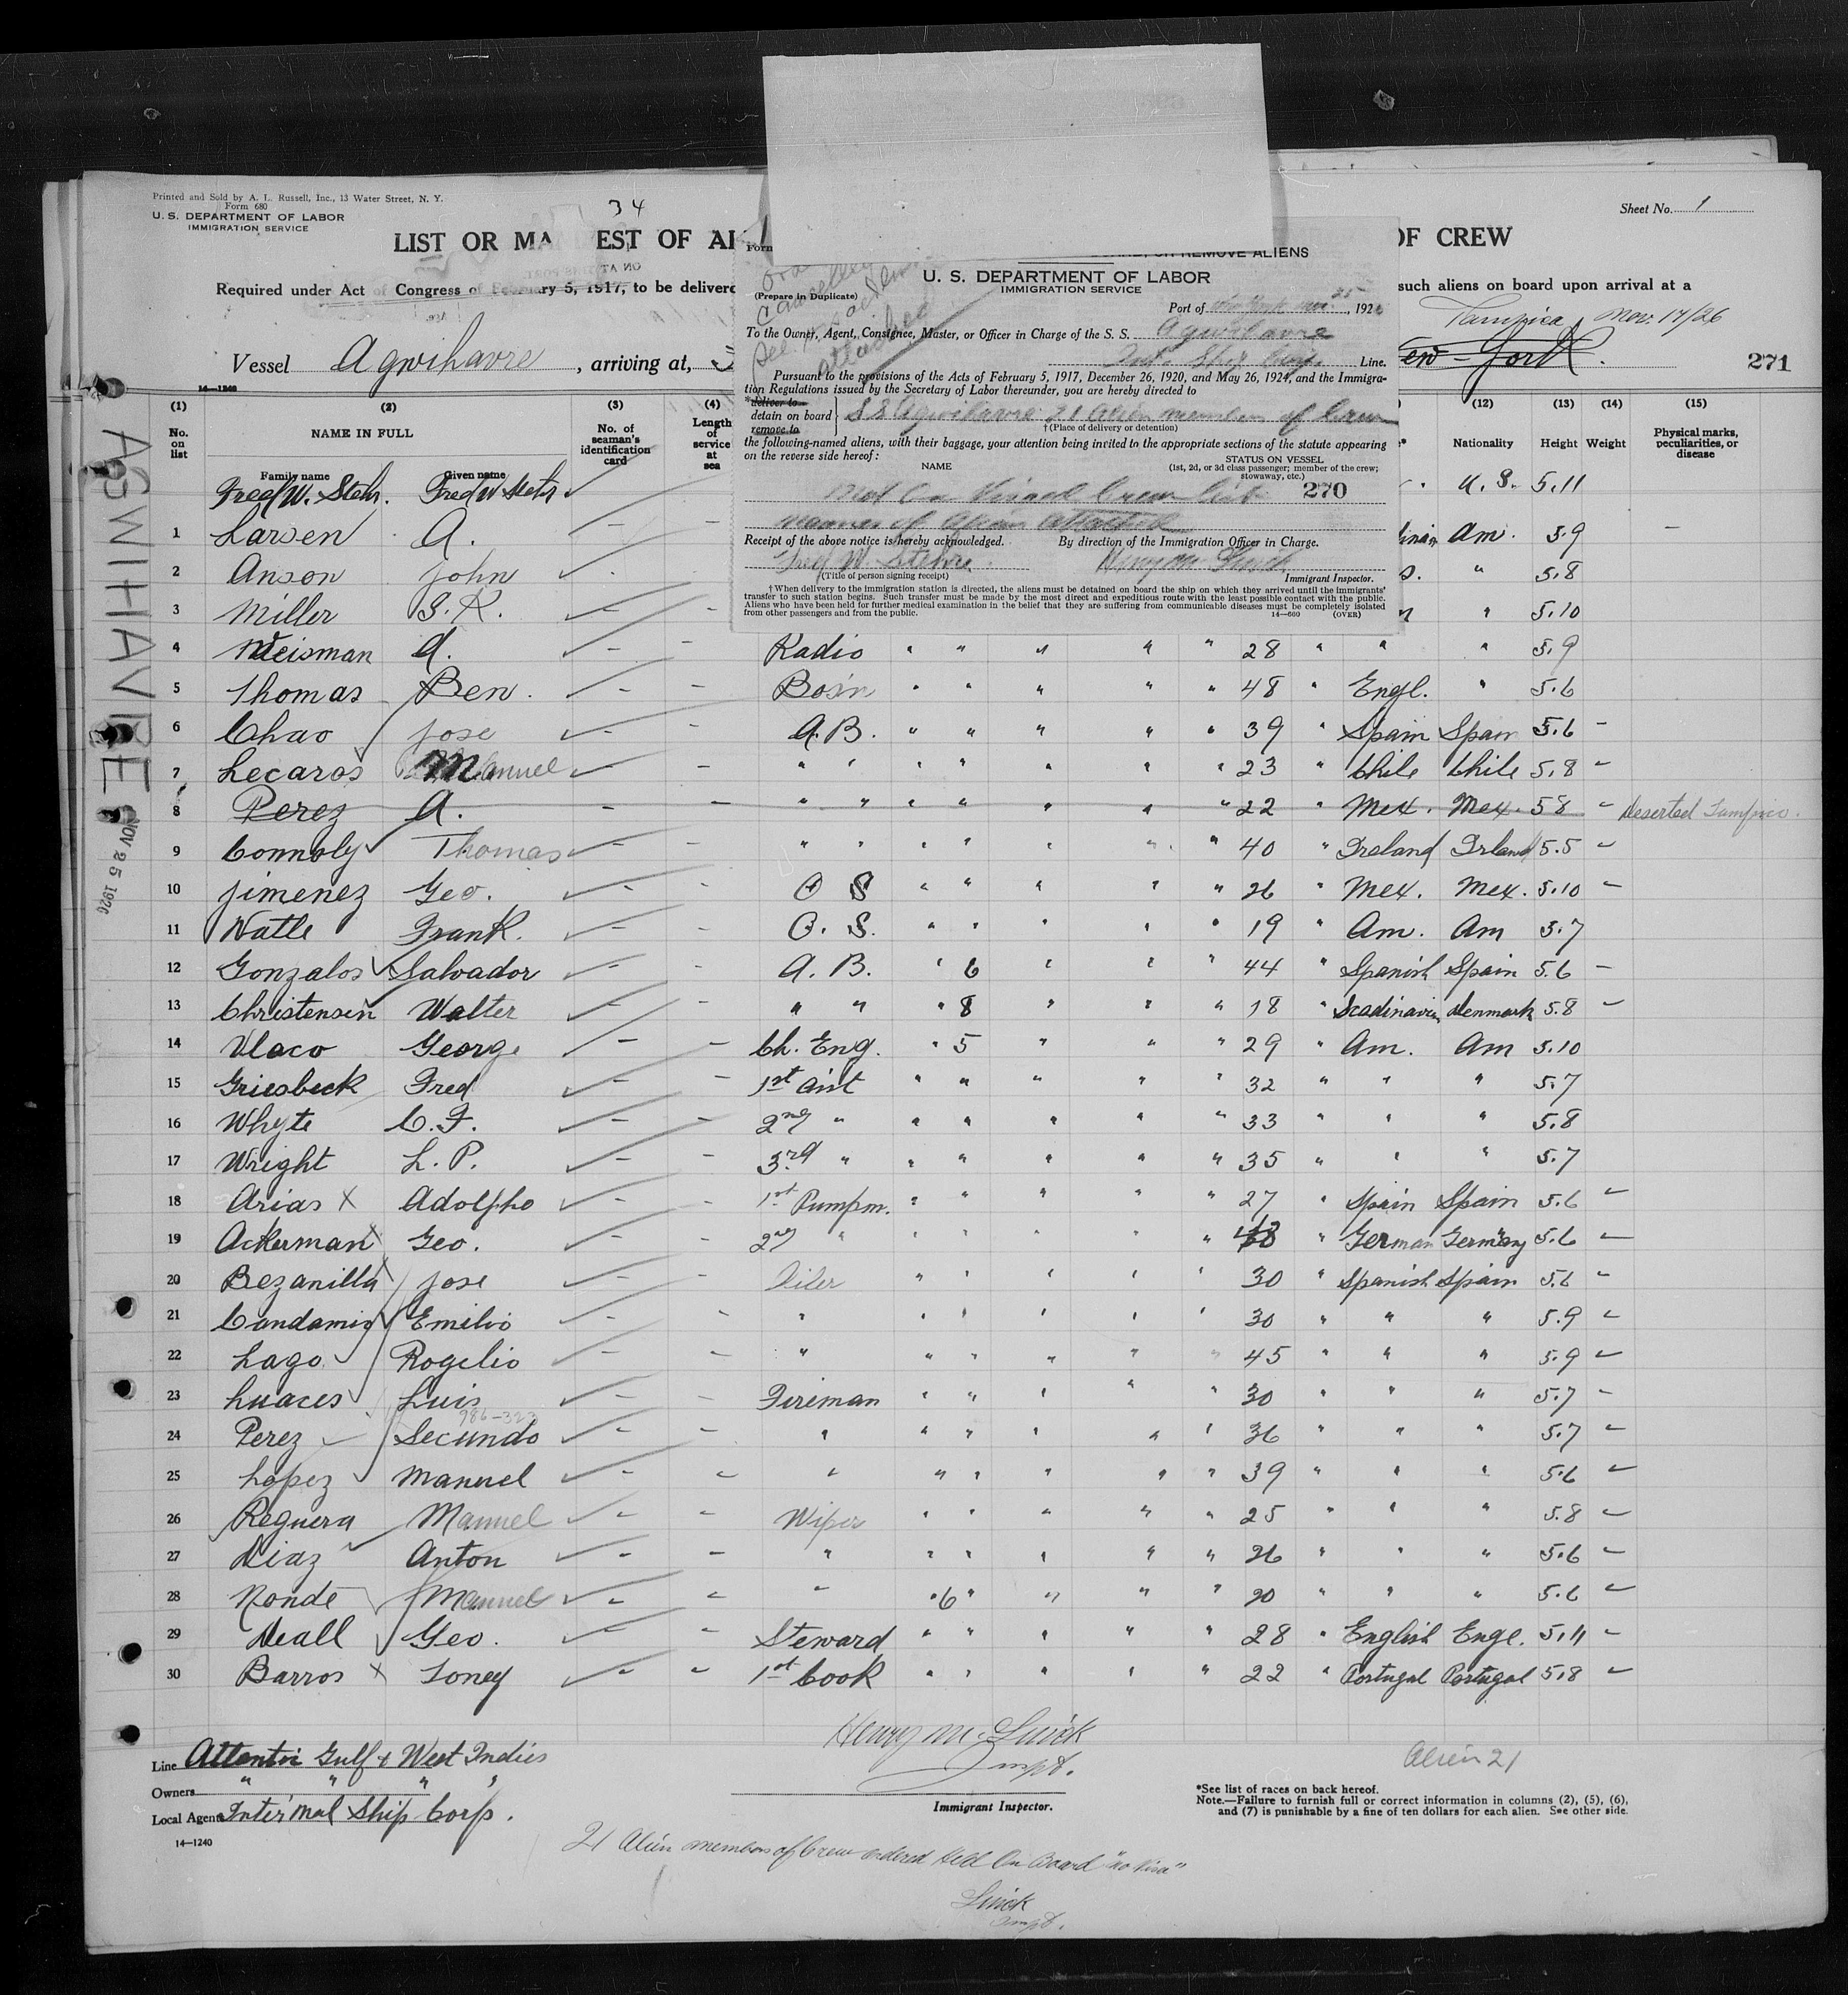 Printed and Sold by A. L. Russell, Inc., 13 Water Street, N. Y.
Form 680
U. S. DEPARTMENT OF LABOR
IMMIGRATION SERVICE
34
Sheet No. 1
LIST OR MA EST OF AL OF CREW
Required under Act of Congress of February 5, 1917, to be delivered such aliens on board upon arrival at a
Tampico, Nov. 17/26
Vessel Agwihavre, arriving at, ew-York. 271
14—1240
Form REMOVE ALIENS
(Prepare in Duplicate)
U. S. DEPARTMENT OF LABOR
IMMIGRATION SERVICE
Port of New York Nov. 25, 1926
To the Owner, Agent, Consignee, Master, or Officer in Charge of the S. S. Agwihavre
Int. Ship Corp. Line.
Pursuant to the provisions of the Acts of February 5, 1917, December 26, 1920, and May 26, 1924, and the Immigra-
tion Regulations issued by the Secretary of Labor thereunder, you are hereby directed to
*deliver to
detain on board S S Agwihavre 21 alien members of Crew
remove to †(Place of delivery or detention)
the following-named aliens, with their baggage, your attention being invited to the appropriate sections of the statute appearing
on the reverse side hereof:
NAME STATUS ON VESSEL
(1st, 2d, or 3d class passenger; member of the crew;
stowaway, etc.)
Not on Visaed Crew list 270
names of aliens attached
Receipt of the above notice is hereby acknowledged. By direction of the Immigration Officer in Charge.
Fred W. Stehr Henry M. Quick
(Title of person signing receipt) Immigrant Inspector.
†When delivery to the immigration station is directed, the aliens must be detained on board the ship on which they arrived until the immigrants'
transfer to such station begins. Such transfer must be made by the most direct and expeditious route with the least possible contact with the public.
Aliens who have been held for further medical examination in the belief that they are suffering from communicable diseases must be completely isolated
from other passengers and from the public. 14—660 (OVER)
(1) (2) (3) (4) (12) (13) (14) (15)
No. on list NAME IN FULL No. of seaman's identification card Length of service at sea Nationality Height Weight Physical marks, peculiarities, or disease
Family name Given name
Fred W. Stehr. Fred W Stehr U. S. 5.11
1 Larsen A. Am. 5.9
2 Anson John " 5.8
3 Miller S. R. " 5.10
4 Weisman A. Radio " " " " " 28 " " " 5.9
5 Thomas Ben. Bosn " " " " " 48 " Engl. " 5.6
6 Chao Jose A.B. " " " " " 39 " Spain Spain 5.6
7 Lecaros Manuel " " " " " " " 23 " Chile Chile 5.8
8 Perez A. " " " " " " " 22 " Mex. Mex. 58 Deserted Tampico.
9 Connoly Thomas " " " " " " " 40 " Ireland Irland 5.5
10 Jimenez Geo. O S " " " " " 26 " Mex. Mex. 5.10
11 Natle Frank. O. S. " " " " " 19 " Am. Am 5.7
12 Gonzalos Salvador A. B. " 6 " " " 44 " Spanish Spain 5.6
13 Christensen Walter " " " 8 " " " 18 " Scadinavian Denmark 5.8
14 Vlaco George Ch. Eng. " 5 " " " 29 " Am. Am 5.10
15 Griesbeck Fred 1st Asst " " " " " 32 " " " 5.7
16 Whyte C. F. 2nd " " " " " " 33 " " " 5.8
17 Wright L. P. 3rd " " " " " " 35 " " " 5.7
18 Arias X Adolpho 1st Pumpm. " " " " " 27 " Spain Spain 5.6
19 Ackerman X Geo. 2nd " " " " " " " German Germany 5.6
20 Bezanilla Jose Oiler " " " " " 30 " Spanish Spain 5.6
21 Candamio Emilio " " " " " " 30 " " " 5.9
22 Lago Rogelio " " " " " " 45 " " " 5.9
23 Luaces Luis Fireman " " " " " 30 " " " 5.7
986-323
24 Perez Secundo " " " " " " 36 " " " 5.7
25 Lopez Manuel " " " " " " 39 " " " 5.6
26 Reguera Manuel Wiper " " " " " 25 " " " 5.8
27 Diaz Anton " " " " " " 26 " " " 5.6
28 Ronde Manuel " " 6 " " " " 20 " " " 5.6
29 Neall Geo. Steward " " " " " 28 " English Engl. 5.11
30 Barros X Toney 1st Cook " " " " " 22 " Portugal Portugal 5.8
AGWIHAVRE
NOV 25 1926
Henry M. Quick
Inspt.
Immigrant Inspector.
Alien 21
Line Attantic Gulf & West Indies
Owners " " " "
Local Agents Inter'nal Ship Corp.
14—1240
*See list of races on back hereof.
Note.—Failure to furnish full or correct information in columns (2), (5), (6),
and (7) is punishable by a fine of ten dollars for each alien. See other side.
21 Alien members of Crew ordered held on Board "no Visa"
Quick
Inspt.